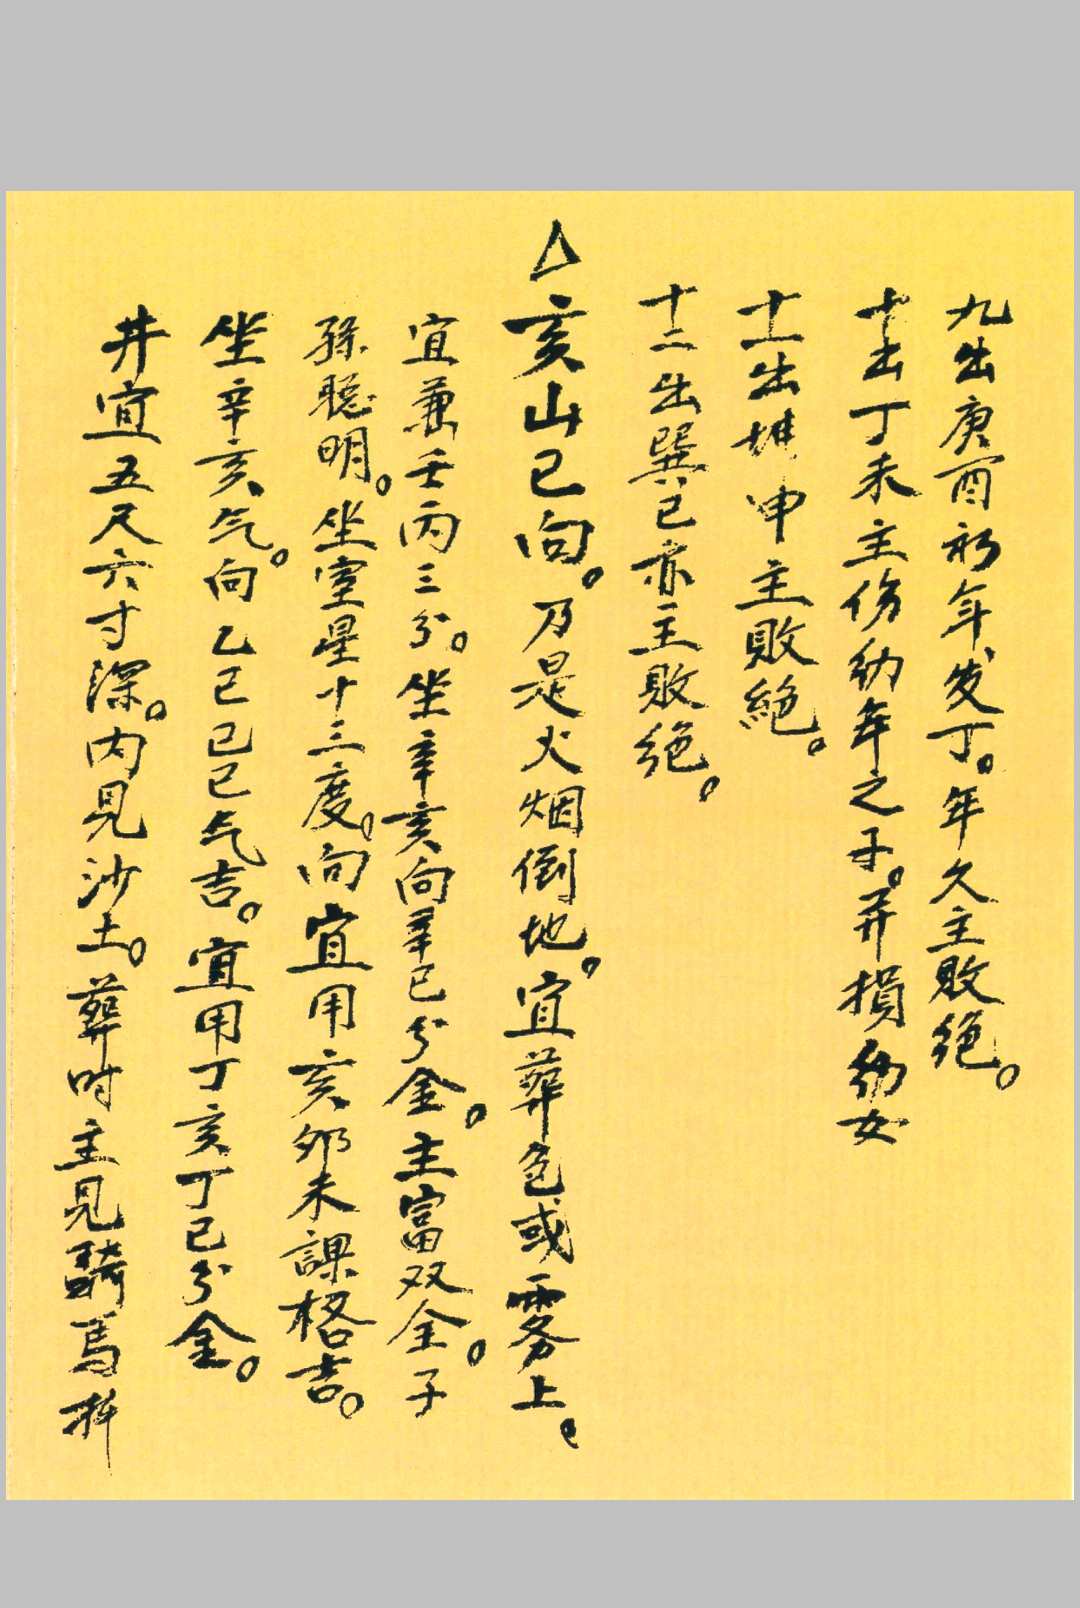 九出庚酉初年发丁。年久主敗绝。
十出丁未主伤幼年之子。并損幼女
十一出坤申主敗絕。
十二出巽巳亦主敗绝。
△亥山巳向。乃是火烟倒地。宜葬色或雾上。
宜兼壬丙三分。坐辛亥向辛巳分金。主富双全。子
孫聪明。坐室星十三度。向宜用亥卯未課格吉。
坐辛亥气。向乙巳己巳气吉。宜用丁亥丁巳分金。
井宜五尺六寸深。内見沙土。葬时主見騎馬